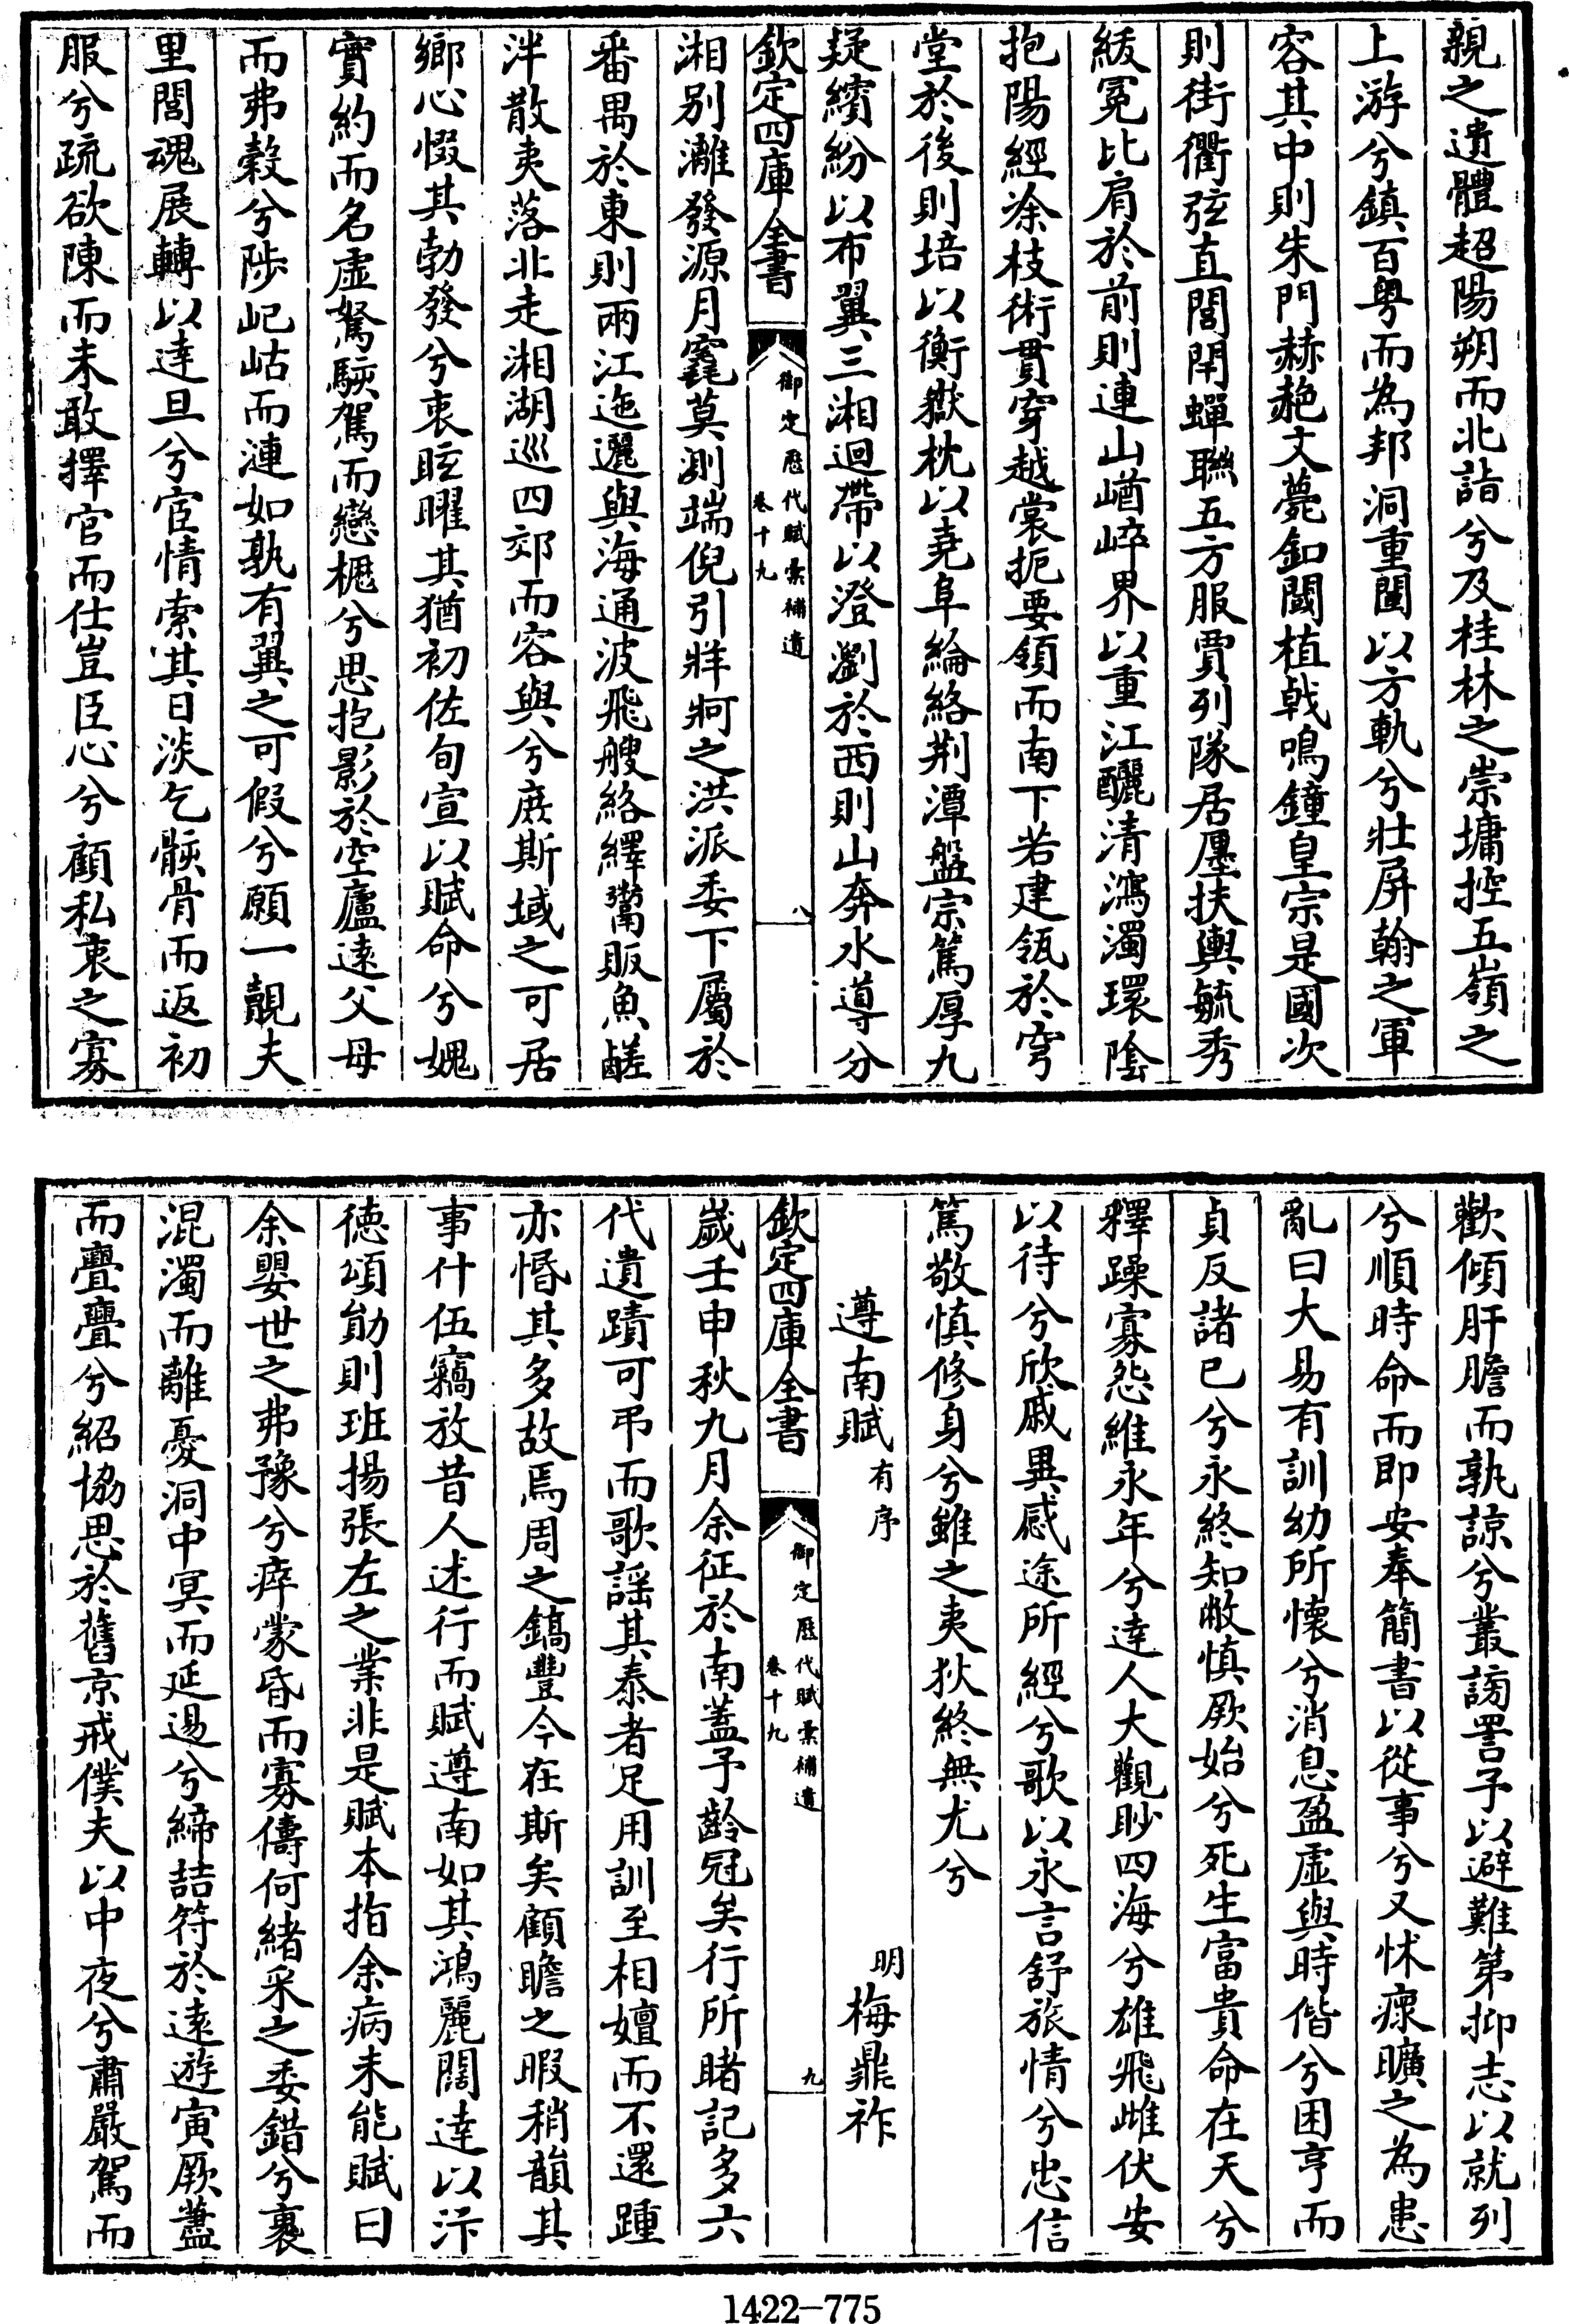 親之遺體超陽朔而北詣兮及桂林之崇墉控五嶺之
上游兮鎮百粤而為邦洞重闉以方軌兮壯屏翰之軍
容其中則朱門赫赩文甍釦閾植戟鳴鐘皇宗是國次
則街衢弦直閭閈蟬聯五方服賈列隊居廛扶輿毓秀
紱冕比肩於前則連山崷崪界以重江釃清瀉濁環陰
抱陽經涂枝術貫穿越裳扼要領而南下若建瓴於穹
堂於後則培以衡嶽枕以堯阜綸絡荆潭盤宗篤厚九
疑繽紛以布翼三湘迴帶以澄瀏於西則山奔水導分
欽定四庫全書
御定歷代賦彙補遺
卷十九
八
湘别灕發源月竁莫測端倪引牂牁之洪派委下屬於
番禺於東則兩江迤邐與海通波飛艘絡繹鬻販魚鹺
泮散夷落北走湘湖巡四郊而容與兮庶斯域之可居
鄉心惙其勃發兮衷眩曜其猶初佐旬宣以賦命兮媿
實約而名虚駑駭駕而戀櫪兮思抱影於空廬遠父母
而弗穀兮陟屺岵而漣如孰有翼之可假兮願一覿夫
里閭魂展轉以達旦兮宦情索其日淡乞骸骨而返初
服兮疏欲陳而未敢擇官而仕豈臣心兮顧私衷之寡
歡傾肝膽而孰諒兮叢謗詈予以避難第抑志以就列
兮順時命而即安奉簡書以從事兮又怵瘝曠之為患
亂曰大易有訓幼所懷兮消息盈虚與時偕兮困亨而
貞反諸已兮永終知敝慎厥始兮死生富貴命在天兮
釋躁寡怨維永年兮達人大觀眇四海兮雄飛雌伏安
以待兮欣戚異感途所經兮歌以永言舒旅情兮忠信
篤敬慎修身兮雖之夷狄終無尤兮
遵南賦有序
明梅鼎祚
欽定四庫全書
御定歷代賦彙補遺
卷十九
九
歲壬申秋九月余征於南蓋予齡冠矣行所睹記多六
代遺蹟可弔而歌謡其泰者足用訓至相嬗而不還踵
亦惛其多故焉周之鎬豐今在斯矣顧瞻之暇稍韻其
事什伍竊放昔人述行而賦遵南如其鴻麗闊達以汴
德頌勛則班揚張左之業非是賦本指余病未能賦曰
余嬰世之弗豫兮瘁蒙昏而寡儔何緒采之委錯兮裹
混濁而離憂洞中冥而延逿兮締喆符於遠遊寅厥蓋
而亹亹兮紹協思於舊京戒僕夫以中夜兮肅嚴駕而
1422-775